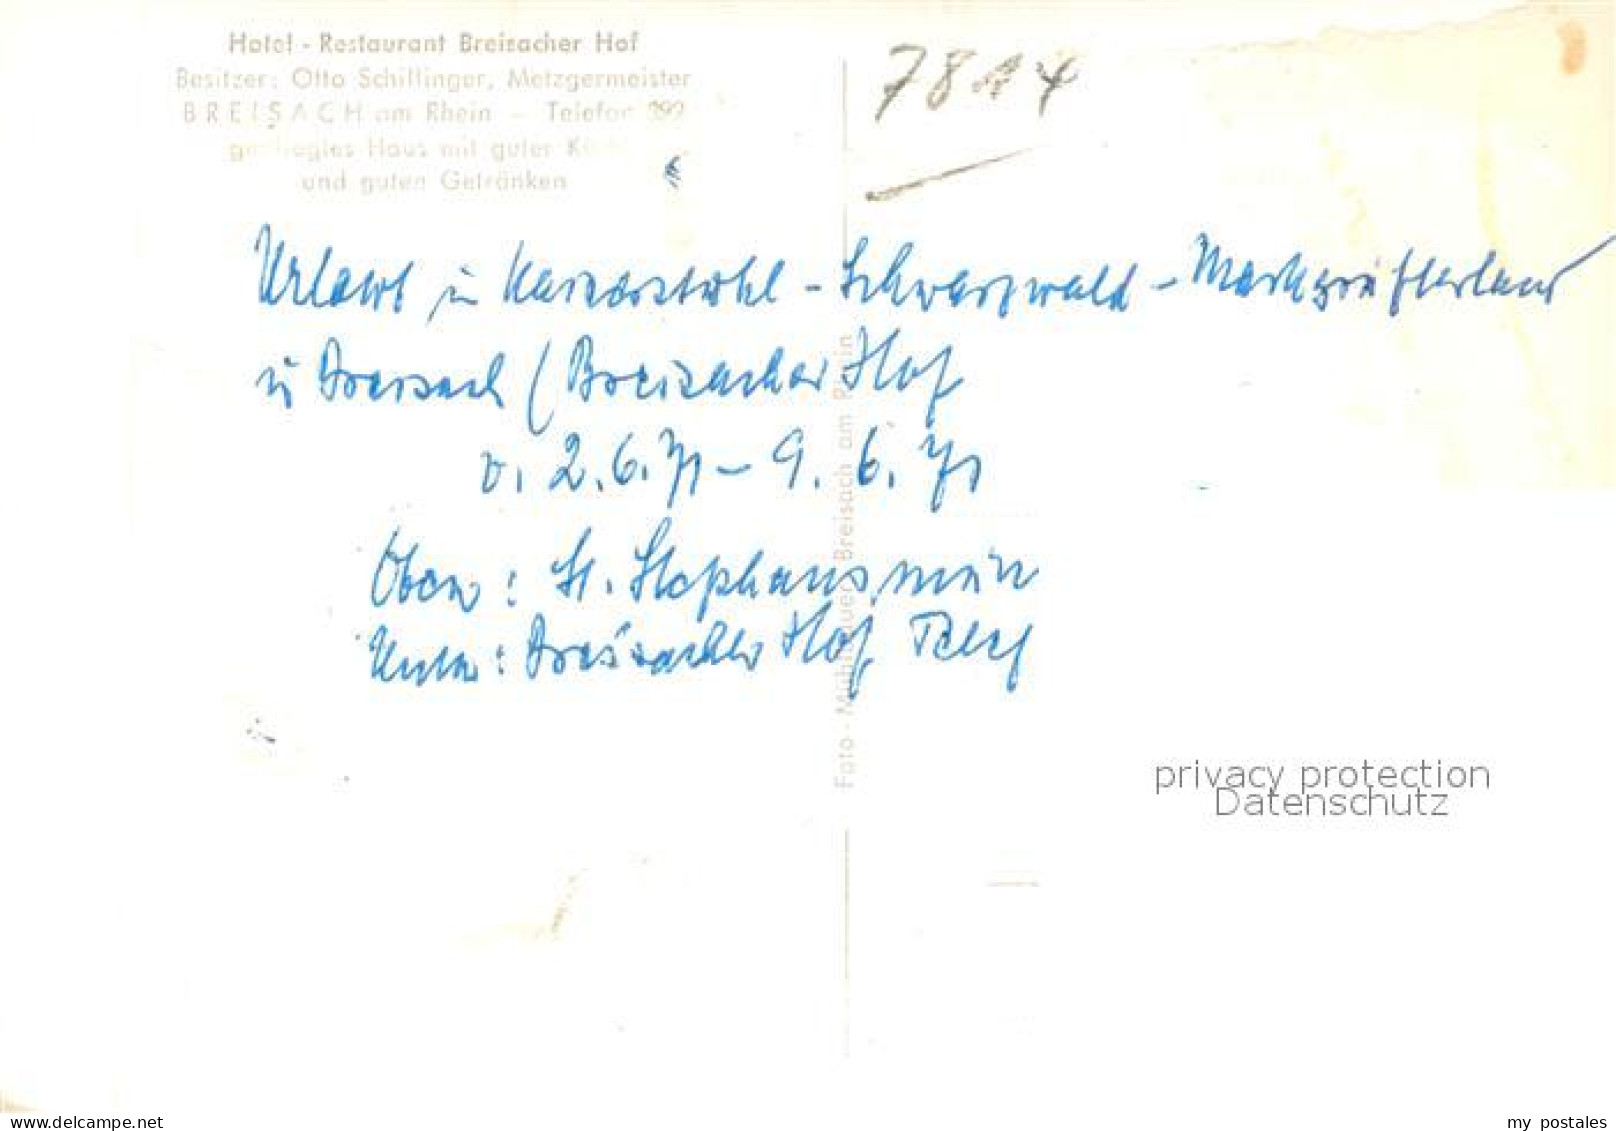 Hotel - Restaurant Breisacher Hof
Besitzer: Otto Schillinger, Metzgermeister
BREISACH am Rhein - Telefon 392
gepflegtes Haus mit guter Küche
und guten Getränken
7814
Urlaub in Kaiserstuhl - Schwarzwald - Markgräflerland
in Breisach (Breisacher Hof
v. 2.6.71 - 9.6.71
Oben: St. Stephansmün
Unten: Breisacher Hof,
Foto - Mühlbauer Breisach am Rhein
privacy protection
Datenschutz
www.delcampe.net
my_postales